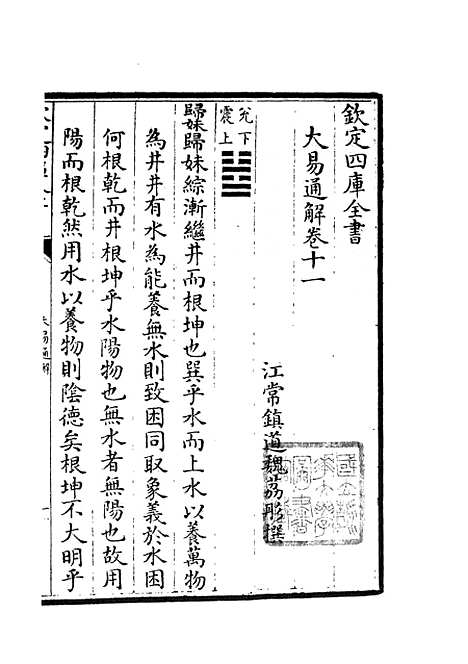 欽定四庫全書
大易通解卷十一
江常鎮道魏荔彤撰
兌下
震上
歸妹歸妹綜漸繼井而根坤也巽乎水而上水以養萬物
為井井有水為能養無水則致困同取象義於水困
何根乾而井根坤乎水陽物也無水者無陽也故用
陽而根乾然用水以養物則陰德矣根坤不大明乎
大易通解
一